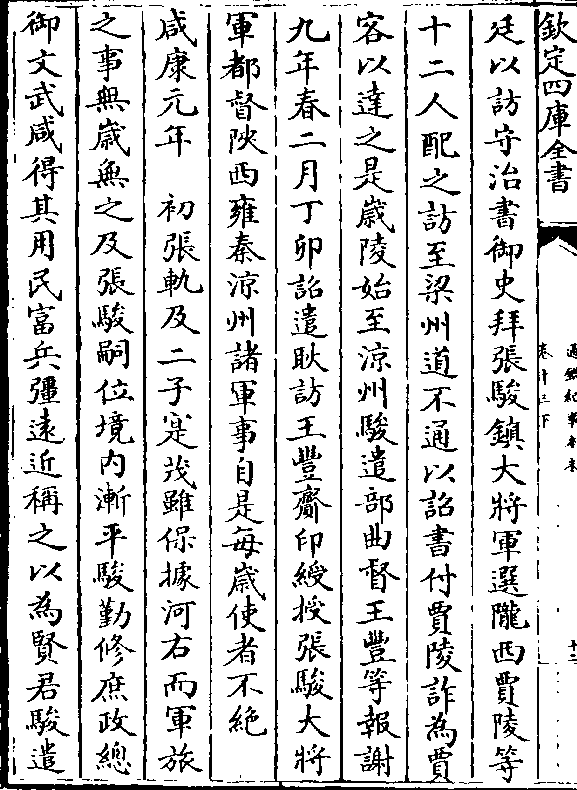 欽定四庫全書
通鑑紀事本末
卷十三下
十二
廷以訪守治書御史拜張駿鎮大將軍選隴西賈陵等
十二人配之訪至梁州道不通以詔書付賈陵詐為賈
客以達之是嵗陵始至涼州駿遣部曲督王豐等報謝
九年春二月丁卯詔遣耿訪王豐齎印綬授張駿大將
軍都督陜西雍秦涼州諸軍事自是每嵗使者不絶
咸康元年　初張軌及二子寔茂雖保據河右而軍旅
之事無嵗無之及張駿嗣位境内漸平駿勤修庶政總
御文武咸得其用民富兵彊逺近稱之以為賢君駿遣